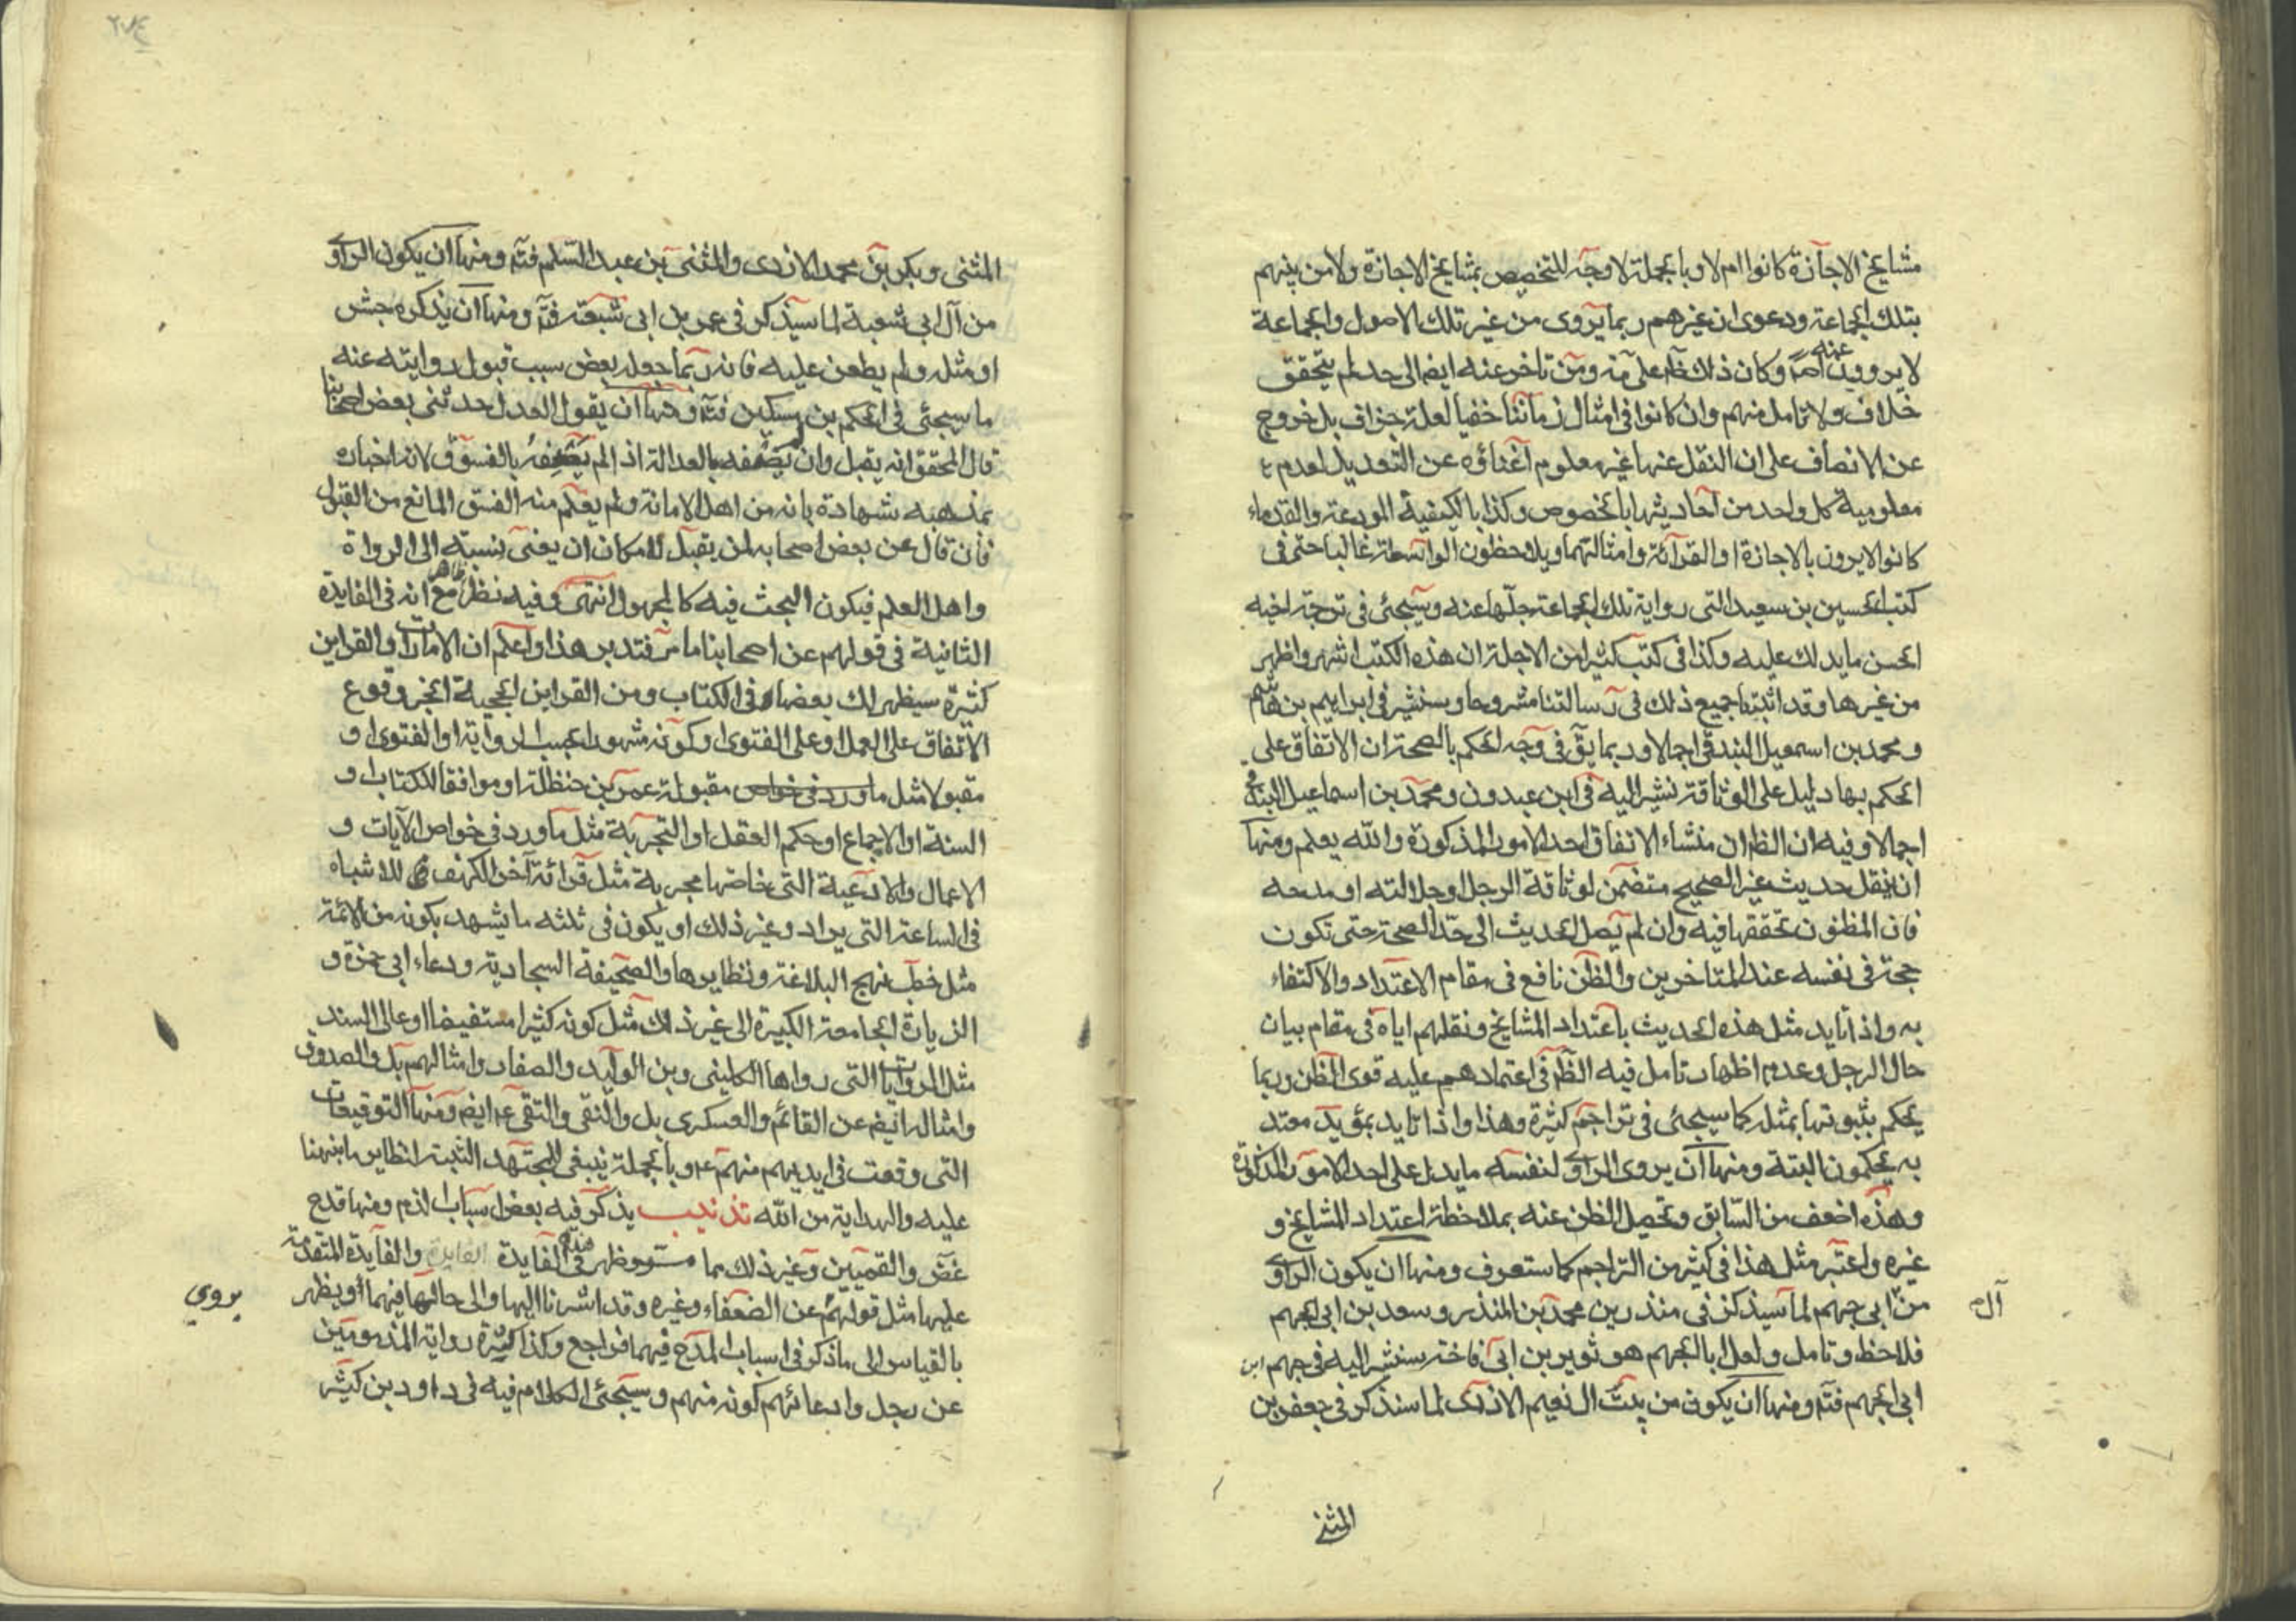 مشايخ الاجازة كانوا ام لا وبالجملة لا وجه للتخصيص بمشايخ الاجازة ولا من بينهم
بتلك الجماعة ودعوى ان غيرهم ربما يروى من غير تلك الاصول والجماعة
لا يروون عنه اصلا وكان ذلك ظاهر عليه ومن تاخر عنه ايضا الى حد لم يتحقق
خلاف ولا تامل منهم وان كانوا فى امثال زماننا خفيا لعله جزاف بل خروج
عن الانصاف على ان النقل عنها غير معلوم اغناؤه عن التعديل لعدم
معلومية كل واحد من احاديثها بالخصوص وكذا بالكيفية المودعة والقدماء
كانوا لا يرون بالاجازة او القرائة وامثالتهما ويلاحظون الواسطة غالبا حتى فى
كتب الحسين بن سعيد التى رواية تلك الجماعة جلها عنه وسيجئ فى ترجمة اخيه
الحسن ما يدلك عليه وكذا فى كتب كثير من الاجلة ان هذه الكتب اشهر واظهر
من غيرها وقد اثبتنا جميع ذلك فى رسالتنا مشروحا وسنشير فى ابراهيم بن هاشم
ومحمد بن اسمعيل البندقى اجمالا وربما يق فى وجه الحكم بالصحة ان الاتفاق على
الحكم بها دليل على الوثاقة نشير اليه فى ابن عبدون ومحمد بن اسماعيل البندقى
اجمالا وفيه ان الظ ان منشاء الاتفاق احد الامور المذكورة والله يعلم ومنها
ان ينقل حديث غير الصحيح متضمن لوثاقة الرجل او جلالته او مدحه
فان المظنون تحققها فيه وان لم يصل الحديث الى حد الصحة حتى تكون
حجة فى نفسه عند المتاخرين والظن نافع فى مقام الاعتداد والاكتفاء
به واذا تايد مثل هذه الحديث باعتداد المشايخ ونقلهم اياه فى مقام بيان
حال الرجل وعدم اظهار تامل فيه الظ فى اعتمادهم عليه قوى الظن وربما
يحكم بثبوتها بمثله كما سيجئى فى تراجم كثيرة وهذا واذا تايد بمؤيد معتد
به يحكمون البتة ومنها ان يروى الراوى لنفسه ما يدل على احد الامور المذكورة
وهذه اضعف من السابق وتحصل الظن عنه بملاحظة اعتداد المشايخ و
غيره واعتبر مثل هذا فى كثير من التراجم كما ستعرف ومنها ان يكون الراوى
من ابى جهم لما سيذكر فى منذر بن محمد بن المنذر وسعد بن ابى الجهم
آل
فلاحظ وتامل ولعل ابا الجهم هو ثوير بن ابى فاختة سنشير اليه فى جهم ابن
ابى الجهم فتم ومنها ان يكون من بيت ال نعيم الازدى لما سنذكر فى جعفر بن
المثنى
المثنى وبكر بن محمد الازدى والمثنى بن عبد السلم فتم ومنها ان يكون الراوى
من آل ابى شعبة لما سيذكر فى عمر بن ابى شعبة فتم ومنها ان يذكره جش
او مثله ولم يطعن عليه فانه ربما جعله بعض سبب قبول روايته عنه
ما سيجئى فى الحكم بن مسكين فتم ومنها ان يقول العدل حدثنى بعض اصحابنا
قال المحقق انه يقبل وان لم يصفه بالعدالة اذا لم يصفه بالفسوق لان اخباره
بمذهبه شهادة بانه من اهل الامانة ولم يعلم منه الفسق المانع من القبول
فان قال عن بعض اصحابه لم يقبل لامكان ان يعنى نسبته الى الرواة
واهل العلم فيكون البحث فيه كالمجهول انتهى وفيه نظر ظاهر مع انه فى الفايدة
الثانية فى قولهم عن اصحابنا ما مر فتدبر هذا واعلم ان الامارات والقراين
كثيرة سيظهر لك بعضها فى الكتاب ومن القراين لحجية الخبر وقوع
الاتفاق على العمل او على الفتوى او كونه مشهورا بحسب الرواية او الفتوى او
مقبولا مثل ما ورد فى خواص مقبولة عمر بن حنظلة او موافقا للكتاب او
السنة او الاجماع او حكم العقل او التجربة مثل ما ورد فى خواص الآيات و
الاعمال والادعية التى خاصتها مجربة مثل قرائة آخر الكهف للاشباه
فى الساعة التى يراد وغير ذلك او يكون فى ثلثه ما يشهد بكونه من الائمة
مثل خطب نهج البلاغة ونظايرها والصحيفة السجادية ودعاء ابى حمزة و
الزيارة الجامعة الكبيرة الى غير ذلك مثل كونه كثيرا مستفيضا او عالى السند
مثل الروايات التى رواها الكلينى وبن الوليد والصفار وامثالهم بل والصدوق
وامثاله ايضا عن القائم والعسكرى بل والنقى والتقى ع ايضا ومنها التوقيعات
التى وقعت فى ايديهم منهم ع وبالجملة ينبغى للمجتهد التثبت لنظاير ما نبهنا
عليه والهداية من الله تذنيب يذكر فيه بعض اسباب الذم ومنها قدح
غض والقميين وغير ذلك مما ستر وظهر فى هذه الفايدة الفايدة والفايدة المتقدمة
عليها مثل قولهم عن الضعفاء وغيره وقد اشرنا اليها والى حالها فيهما او يظهر
يروي
بالقياس الى ما ذكر فى اسباب المدح فيهما فراجع وكذا كثيرة رواية المذمومين
عن رجل وادعائهم كونه منهم وسيجئ الكلام فيه فى داود بن كثير